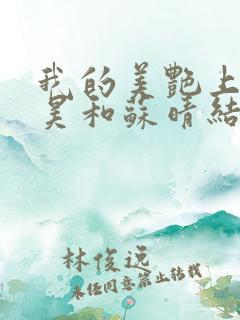 我的美艷上
昊和蘇晴結
林俊远
未经同意禁止转载